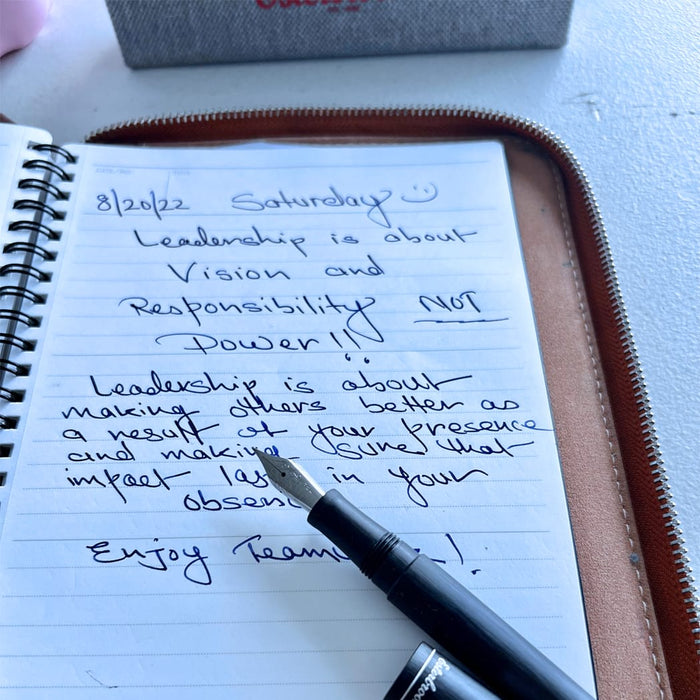 8/20/22 Saturday
Leadership is about
Vision and
Responsibility NOT
Power!!
Leadership is about
making others better as
a result of your presence
and making sure that
impact las in your
absenc
Enjoy Team !